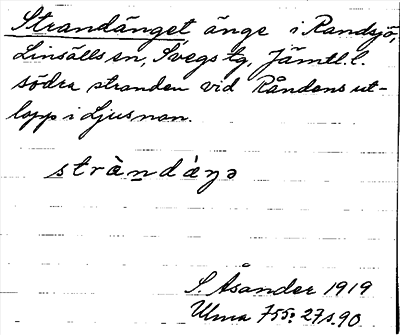 Strandänget änge i Randsjö,
Linsälls sn, Svegs tg, Jämtl. l.
södra stranden vid Råndens ut-
lopp i Ljusnan.
stràndáŋə
S. Åsander 1919
Ulma 755: 27 s. 90.